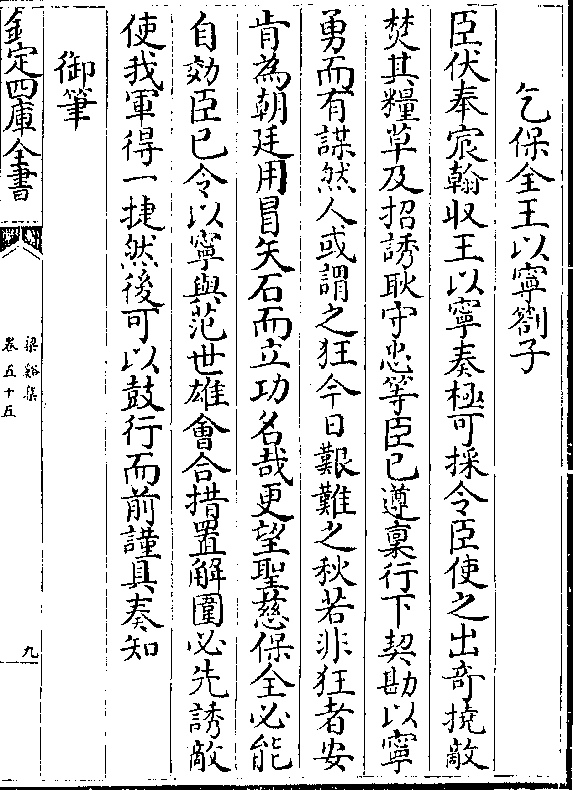 乞保全王以寧劄子
臣伏奉宸翰収王以寧奏極可採令臣使之出奇撓敵
焚其糧草及招誘耿守忠等臣已遵稟行下契勘以寧
勇而有謀然人或謂之狂今日艱難之秋若非狂者安
肯為朝廷用冒矢石而立功名哉更望聖慈保全必能
自効臣已令以寧與范世雄會合措置解圍必先誘敵
使我軍得一捷然後可以鼓行而前謹具奏知
御筆
欽定四庫全書
梁谿集
卷五十五
九